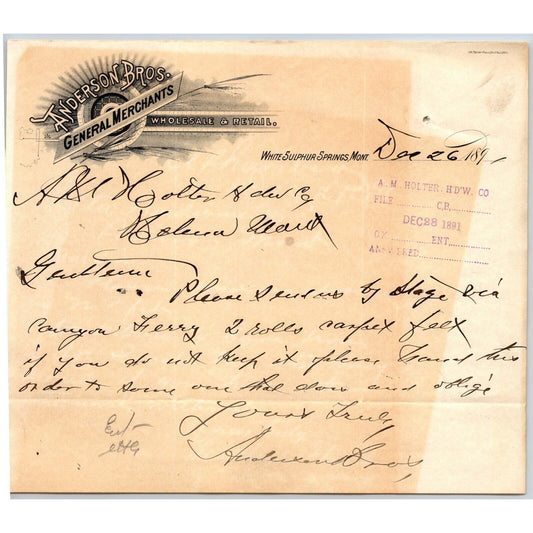 ANDERSON BROS.
GENERAL MERCHANTS
WHOLESALE & RETAIL.
WHITE SULPHUR SPRINGS, MONT. Dec 26 1891
A. M. HOLTER H'D'W. CO
FILE ............ C.B. ............
DEC 28 1891
ENT. ............
ANSWERED ............
A M Holter Hdw Co
Helena Mont
Gentlemen
Please send us by stage via
canyon Ferry 2 rolls carpet felt
if you do not keep it please Transf this
order to some one that does and oblige
Yours Truly,
Anderson Bros,
Ent